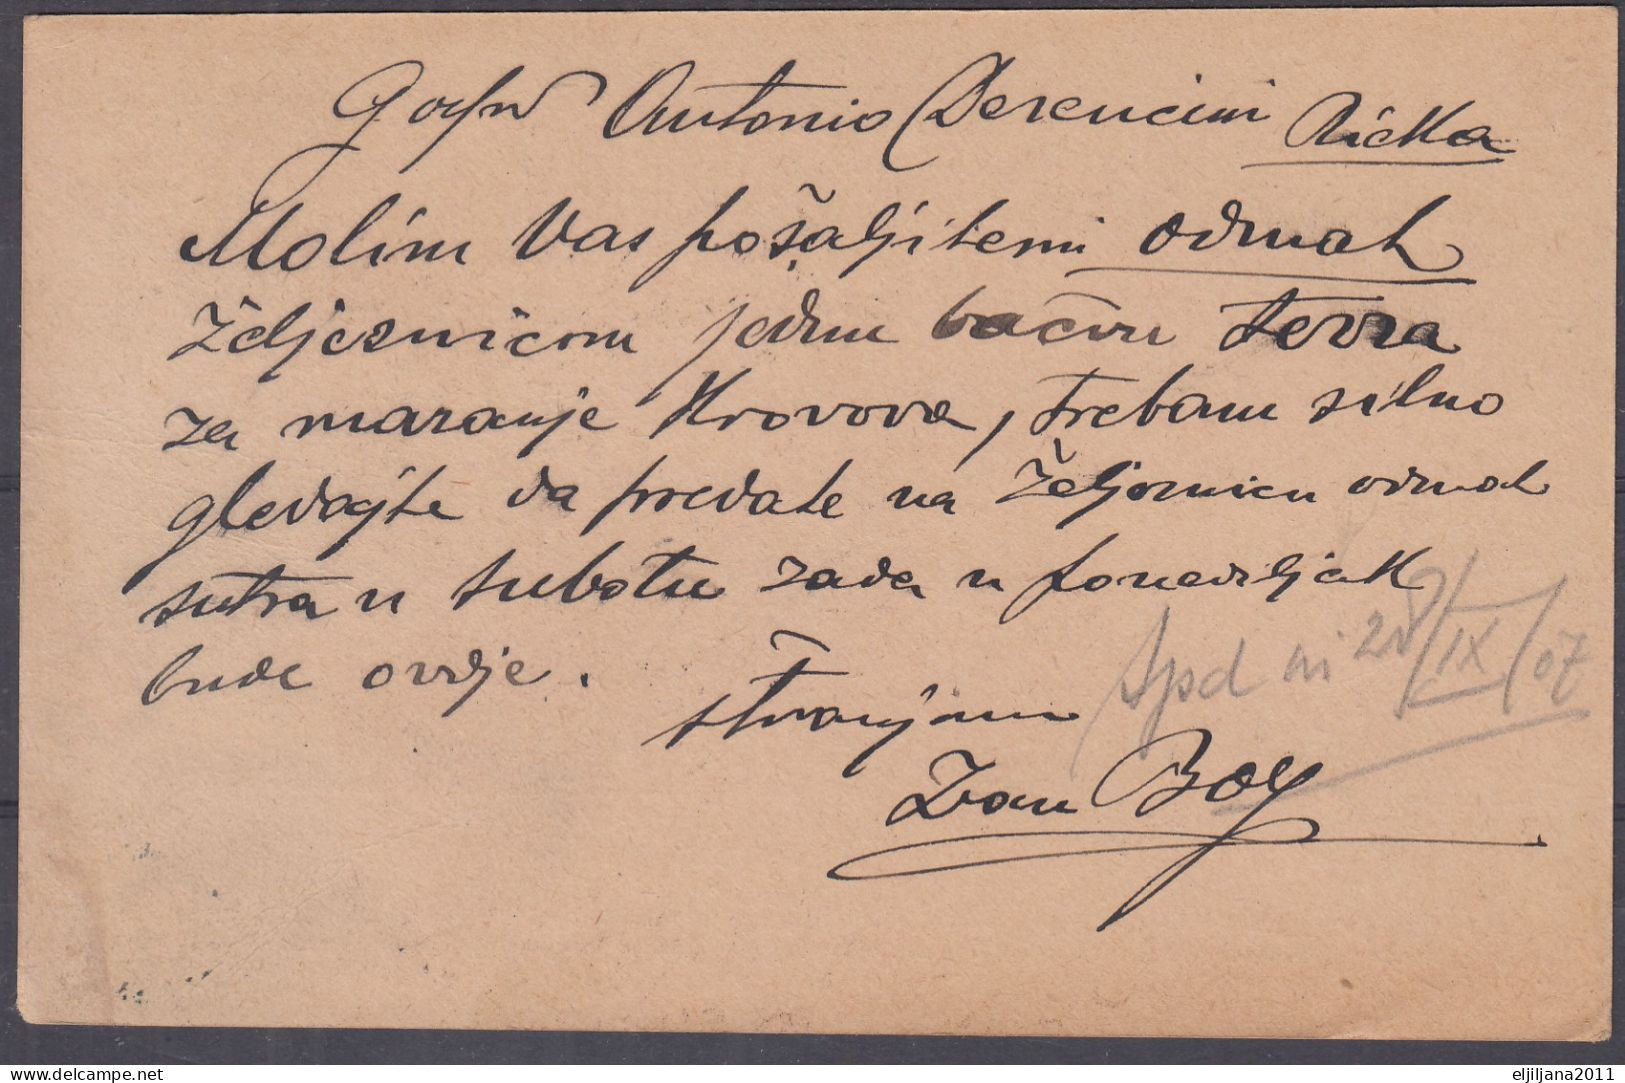 Gospn Antonio Derencini Rieka
Molim Vas pošaljitemi odmah
Željeznicom jednu bačvu tera
za mazanje Krovova, trebam silno
gledajte da predate na Željeznicu odmah
sutra u subotu zada u ponediljak
bude ovdje.
štovanjem
Ivan Boy
Spd 28/IX/07
delcampe.net
eljiljana2011